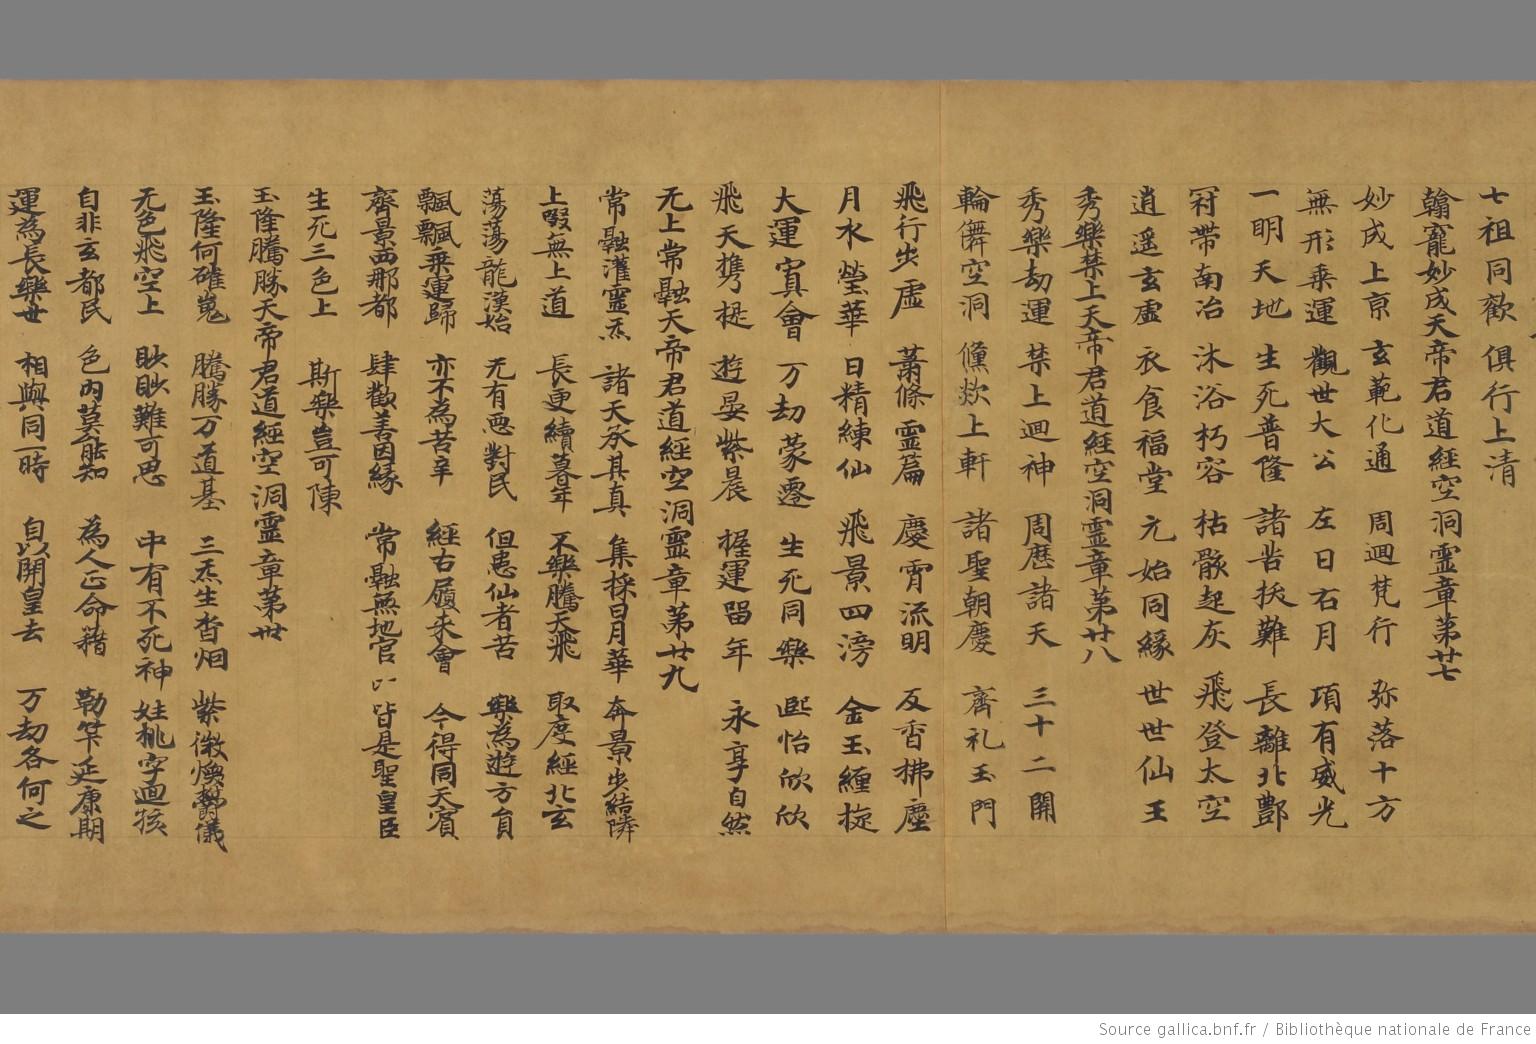 七祖同歡 俱行上清
翰寵妙成天帝君道經空洞靈章第廿七
妙成上京 玄範化通 周迴梵行 弥落十方
無形乗運 觀世大公 左日右月 項有威光
一明天地 生死普隆 諸苦拔難 長離北酆
冠帶南冶 沐浴朽容 枯骸起灰 飛登太空
逍遥玄虛 衣食福堂 元始同緣 世世仙王
秀樂禁上天帝君道經空洞靈章第廿八
秀樂劫運 禁上迴神 周歷諸天 三十二開
輪儛空洞 儵欻上軒 諸聖朝慶 齊礼玉門
飛行步虛 蕭條靈篇 慶霄流明 反香拂塵
月水瑩華 日精練仙 飛景四滂 金玉纏掟
大運寘會 万劫蒙遷 生死同樂 熙怡欣欣
飛天携提 遊晏紫晨 握運留年 永享自然
无上常融天帝君道經空洞靈章第廿九
常融灌靈炁 諸天承其真 集採日月華 奔景步結隣
上啜無上道 長更續暮年 不樂騰天飛 取度經北玄
蕩蕩龍漢始 无有惡對民 但患仙者苦 樂為遊方員
飄飄乗運歸 亦不為苦辛 經右履未會 今得同天賓
齊景西那都 肆勸善因緣 常融無地官 皆是聖皇臣
生死三色上 斯樂豈可陳
玉隆騰勝天帝君道經空洞靈章第卅
玉隆何確嵬 騰勝万道基 三炁生杳𤇆 紫微煥欝儀
无色飛空上 眇眇難可思 中有不死神 娃挑字迴𤙒
自非玄都民 色內莫能知 為人正命藉 勒筭延康期
運為長樂世 相與同一時 自以開皇去 万劫各何之
Source gallica.bnf.fr / Bibliothèque nationale de France